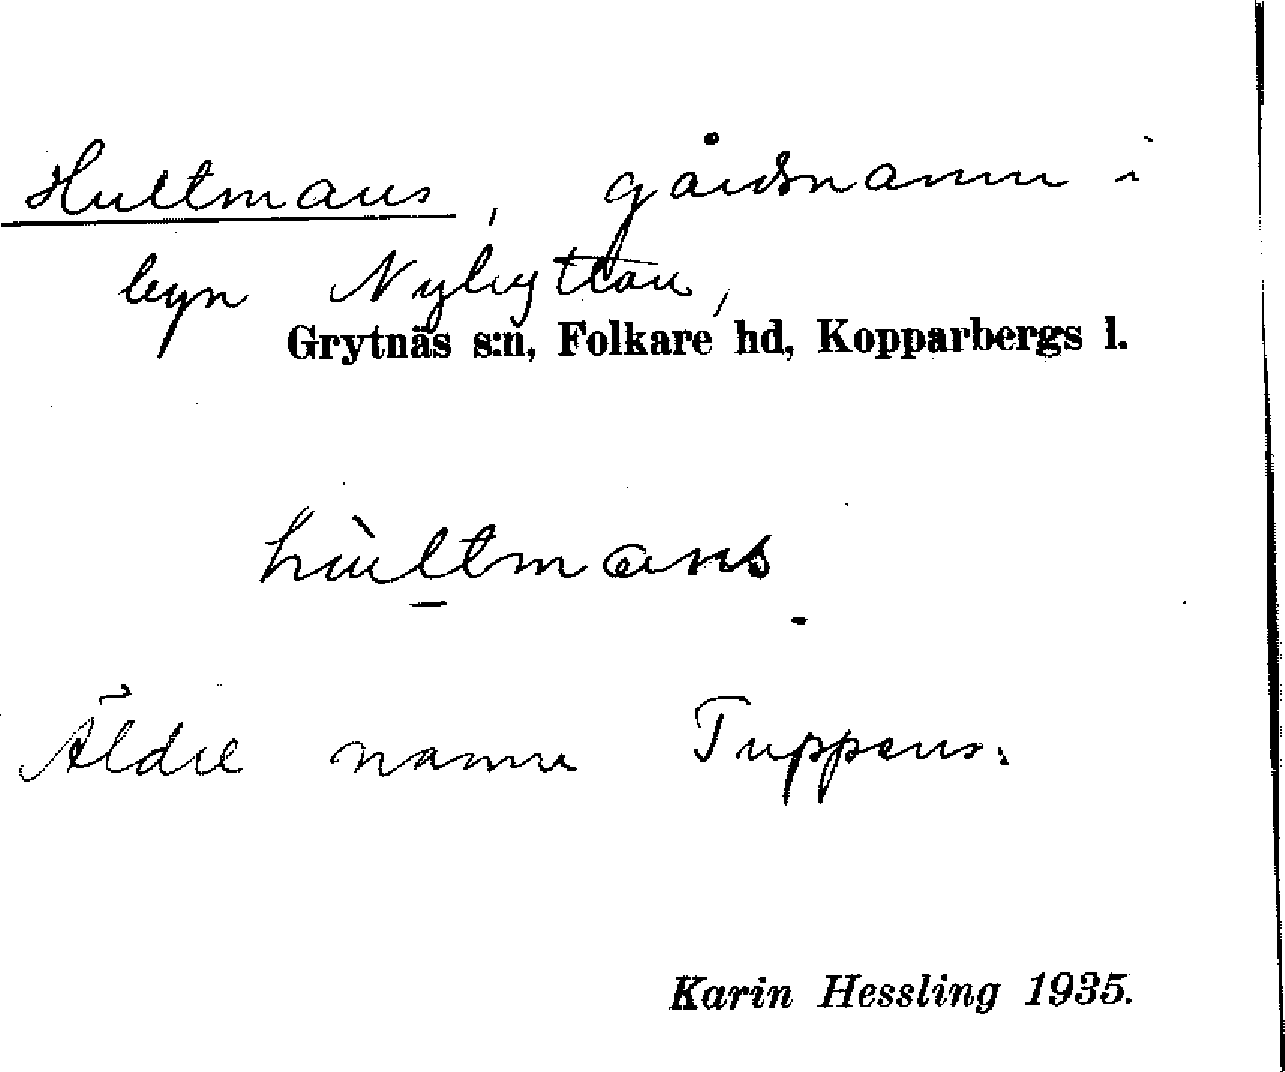 Hultmans, gårdsnamn i
byn Nyhyttan,
Grytnäs s:n, Folkare hd, Kopparbergs l.
hùltmans
Äldre namn Tuppens.
Karin Hessling 1935.